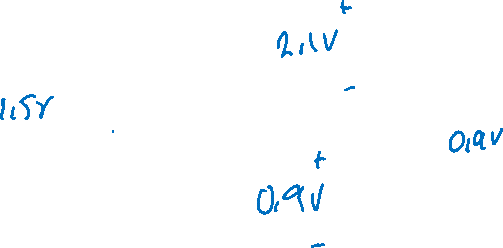 +
2.1V
-
1.5V
0.9V
+
0.9V
-